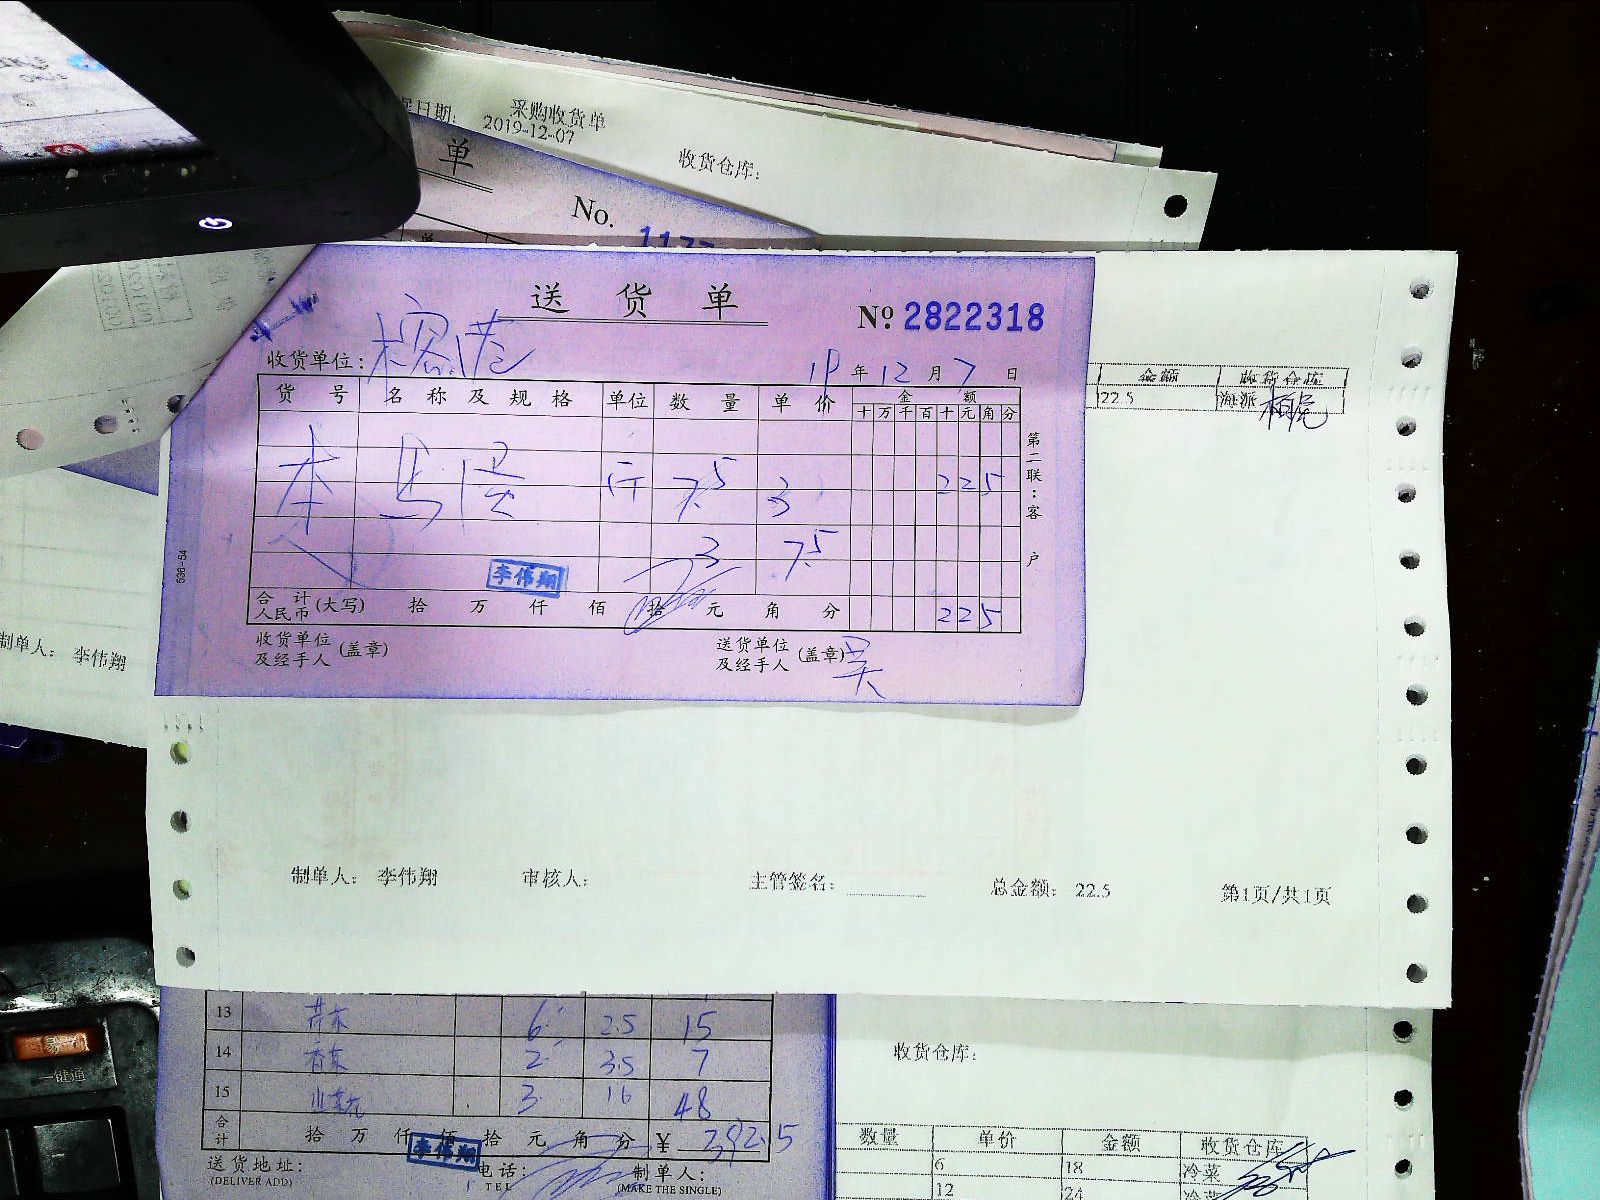 采购收货单
日期: 2019-12-07
收货仓库:
单
No. 1177
送货单
№ 2822318
收货单位: 榕港
19年12月7日
货号 名称及规格 单位 数量 单价 金额
十万千百十元角分
本 马蛋 斤 7.5 3 225
3 7.5
李伟翔
合计人民币(大写) 拾 万 仟 佰 拾 元 角 分 225
收货单位及经手人(盖章) 送货单位及经手人(盖章) 吴
第二联:客户
536-54
金额 收货仓库
22.5 海派
制单人: 李伟翔
制单人: 李伟翔 审核人: 主管签名: 总金额: 22.5 第1页/共1页
13 6 2.5 15
14 香东 2 3.5 7
15 3 16 48
合计 拾 万 仟 佰 拾 元 角 分 ¥ 392.5
李伟翔
送货地址: 电话: 制单人:
(DELIVER ADD) TEL (MAKE THE SINGLE)
收货仓库:
数量 单价 金额 收货仓库
6 18 冷菜
12 24 冷菜
一键通